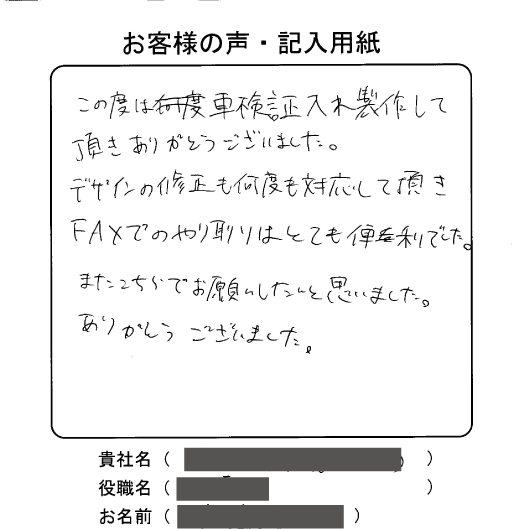 お客様の声・記入用紙
この度は何度車検証入れ製作して
頂きありがとうございました。
デザインの修正も何度も対応して頂き
FAXでのやり取りはとても便利でした。
またこちらでお願いしたいと思いました。
ありがとうございました。
貴社名（　　　）
役職名（　　　）
お名前（　　　）